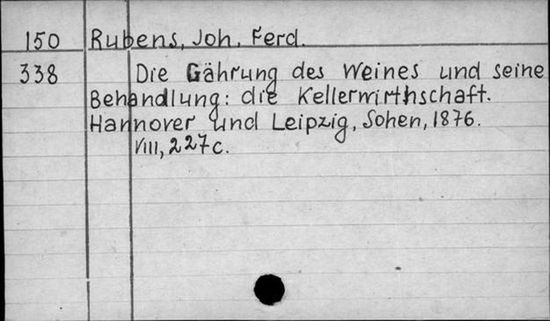 150 Rubens, Joh. Ferd.
338 Die Gährung des Weines und seine
Behandlung: die Kellerwirthschaft.
Hannover und Leipzig, Sohen, 1876.
VIII, 227c.